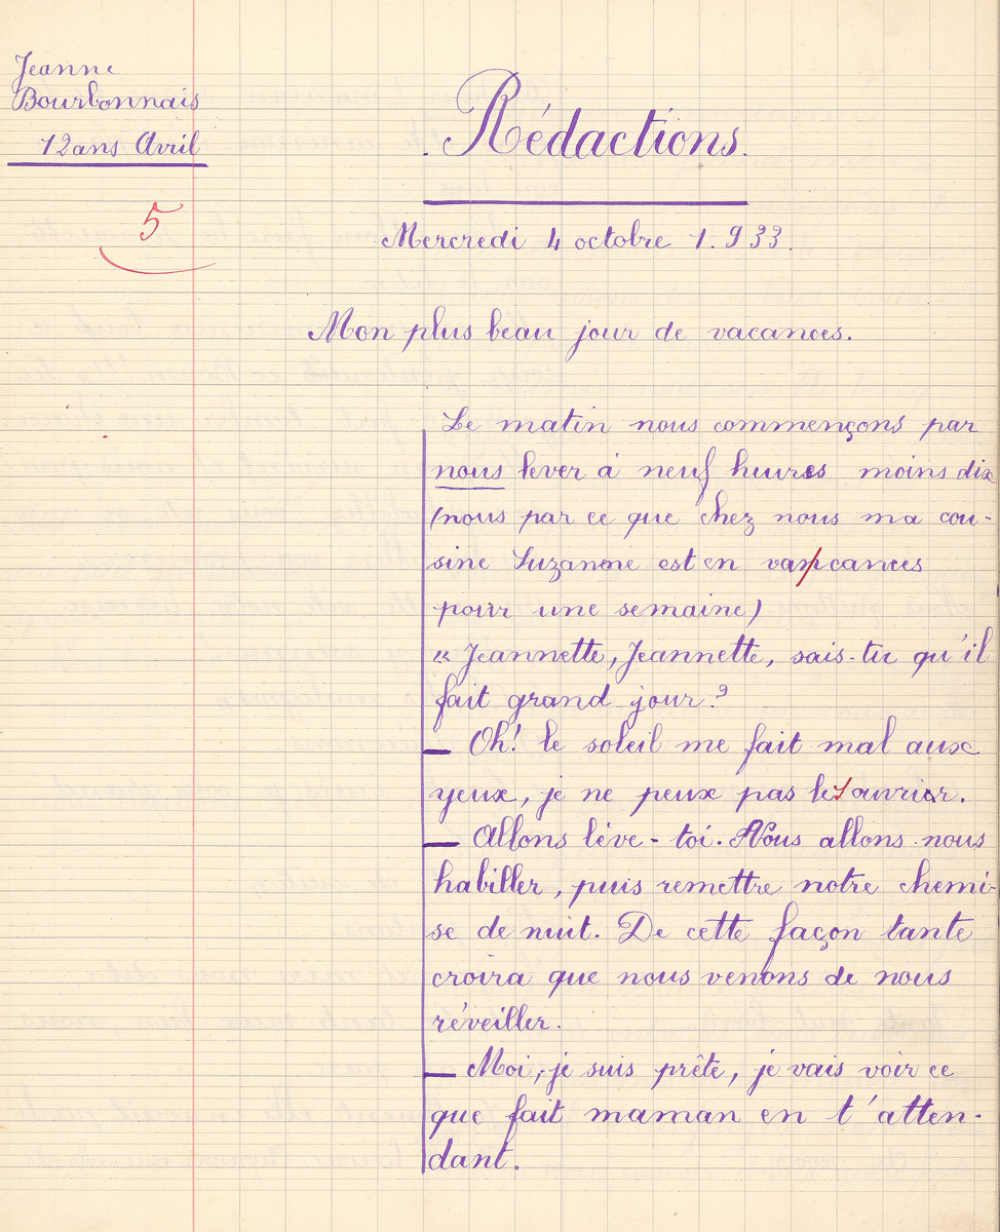 Jeanne
Bourbonnais
12 ans Avril
5
. Rédactions.
Mercredi 4 octobre 1.933.
Mon plus beau jour de vacances.
Le matin nous commençons par
nous lever à neuf heures moins dix
(nous par ce que chez nous ma cou-
sine Suzanne est en vacances
pour une semaine)
« Jeannette, Jeannette, sais-tu qu'il
fait grand jour ?
— Oh! le soleil me fait mal aux
yeux, je ne peux pas les ouvrir.
— Allons lève-toi. Nous allons nous
habiller, puis remettre notre chemi-
se de nuit. De cette façon tante
croira que nous venons de nous
réveiller.
— Moi, je suis prête, je vais voir ce
que fait maman en t'atten-
dant.